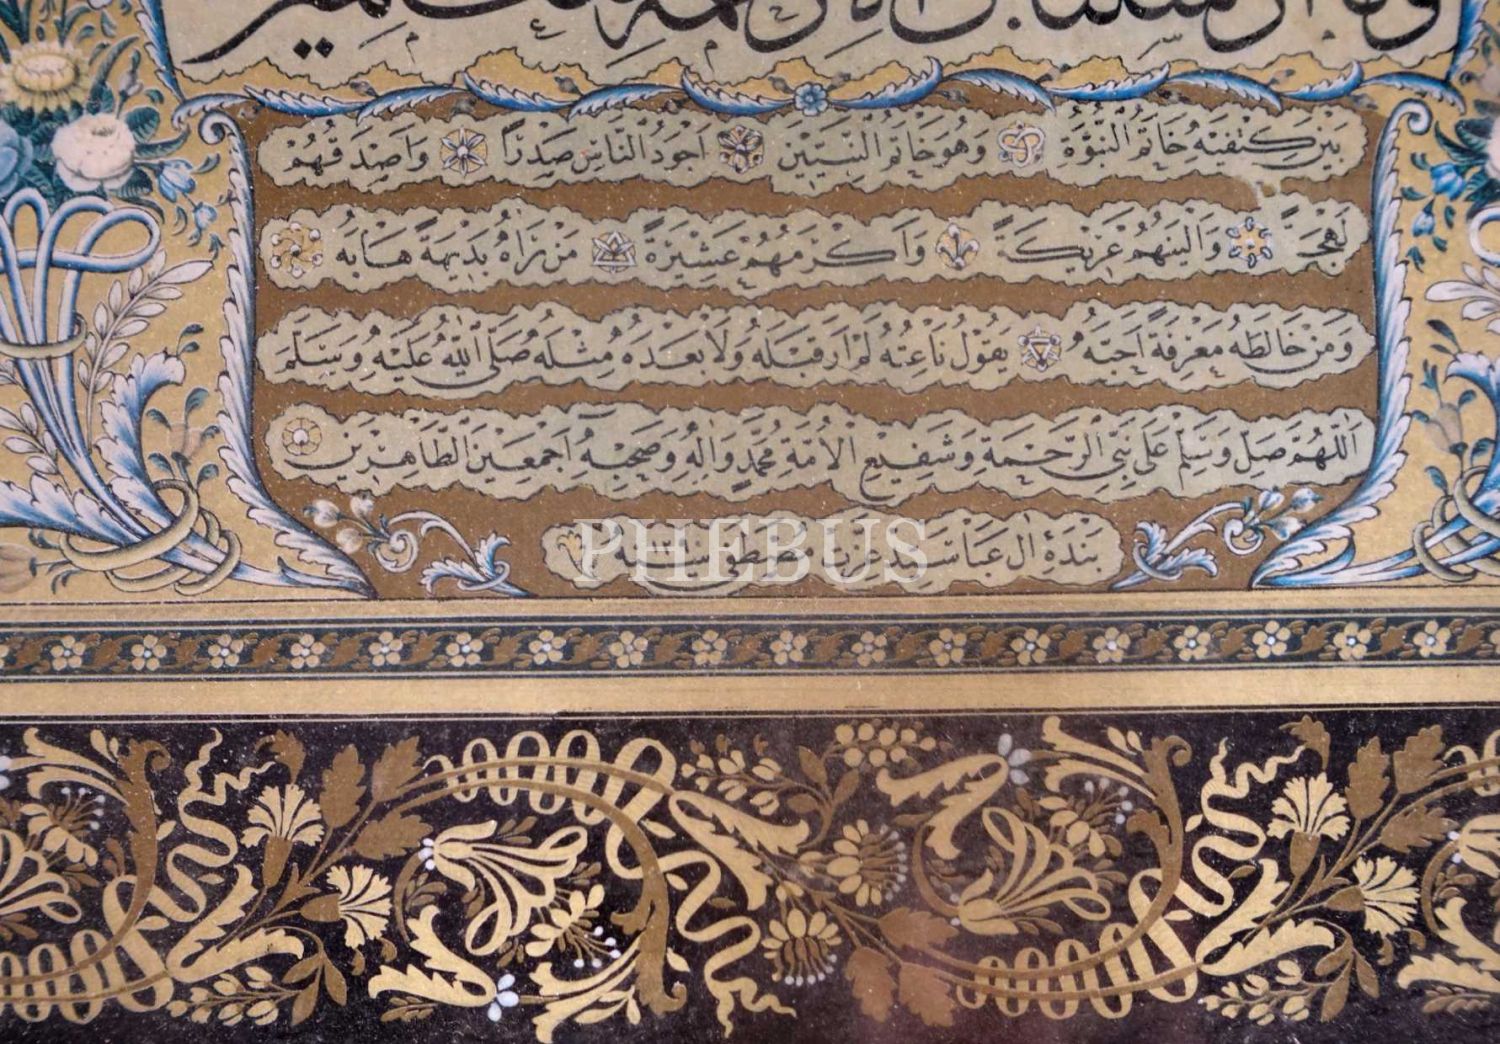 وما أرسلناك إلا رحمة للعالمين
بَيْنَ كَتِفَيْهِ خَاتَمُ النُّبُوَّةِ وَهُوَ خَاتَمُ النَّبِيِّينَ اَجْوَدُ النَّاسِ صَدْرًا وَاَصْدَقُهُمْ
لَهْجَةً وَاَلْيَنُهُمْ عَرِيكَةً وَاَكْرَمُهُمْ عَشِيرَةً مَنْ رَاٰهُ بَدِيهَةً هَابَهُ
وَمَنْ خَالَطَهُ مَعْرِفَةً اَحَبَّهُ يَقُولُ نَاعِتُهُ لَمْ اَرَ قَبْلَهُ وَلَا بَعْدَهُ مِثْلَهُ صَلَّى اللّٰهُ عَلَيْهِ وَسَلَّمَ
اَللّٰهُمَّ صَلِّ وَسَلِّمْ عَلَى نَبِيِّ الرَّحْمَةِ وَشَفِيعِ الْاُمَّةِ مُحَمَّدٍ وَاٰلِهِ وَصَحْبِهِ اَجْمَعِينَ الطَّاهِرِينَ
بندهٔ آل عبا سيد عزت مصطفى
PHEBUS